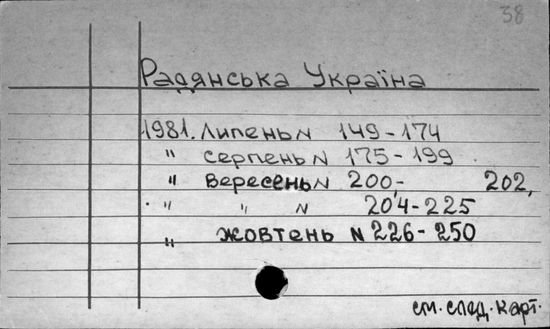 38
Радянська Україна
1981. Липень N 149-174
" серпень N 175-199
" вересень N 200,- 202,
" " N 204-225
" жовтень N 226-250
см. след. карт.